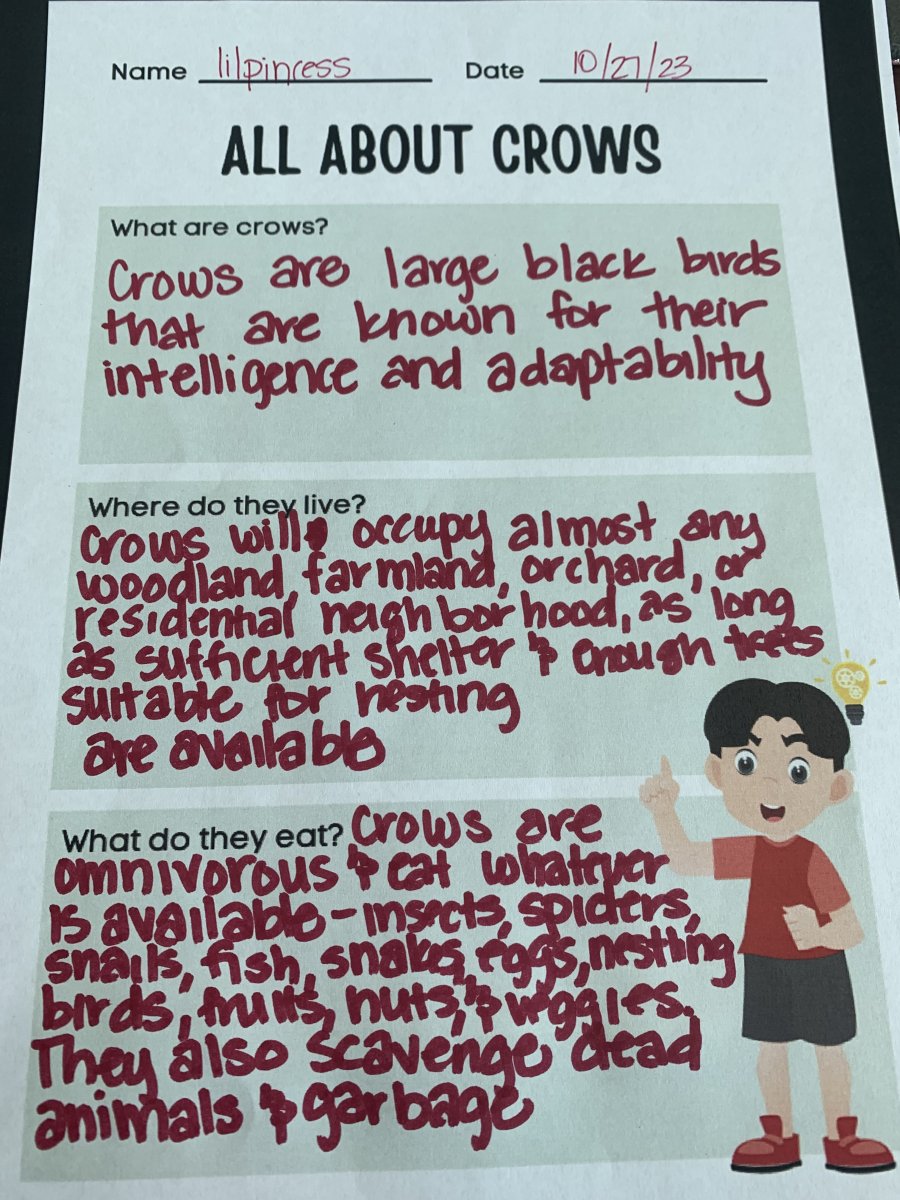 Name lilpincess Date 10/27/23
ALL ABOUT CROWS
What are crows?
Crows are large black birds
that are known for their
intelligence and adaptability
Where do they live?
Crows will occupy almost any
woodland, farmland, orchard, or
residential neighborhood, as long
as sufficient shelter & enough trees
suitable for nesting
are available
What do they eat? Crows are
omnivorous & eat whatever
is available - insects, spiders,
snails, fish, snakes, eggs, nestling
birds, fruits, nuts, & veggies.
They also scavenge dead
animals & garbage